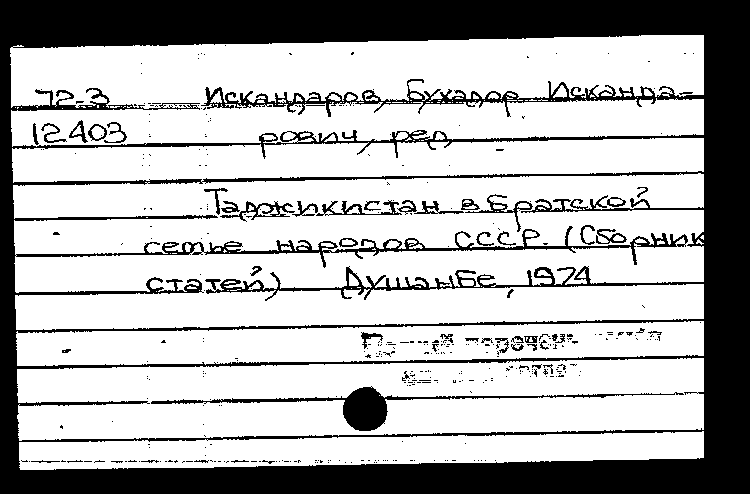 72-3 Искандаров, Бухадор Исканда-
12403 рович, ред
Таджикистан в братской
семье народов СССР. (Сборник
статей) Душанбе, 1974
перечень